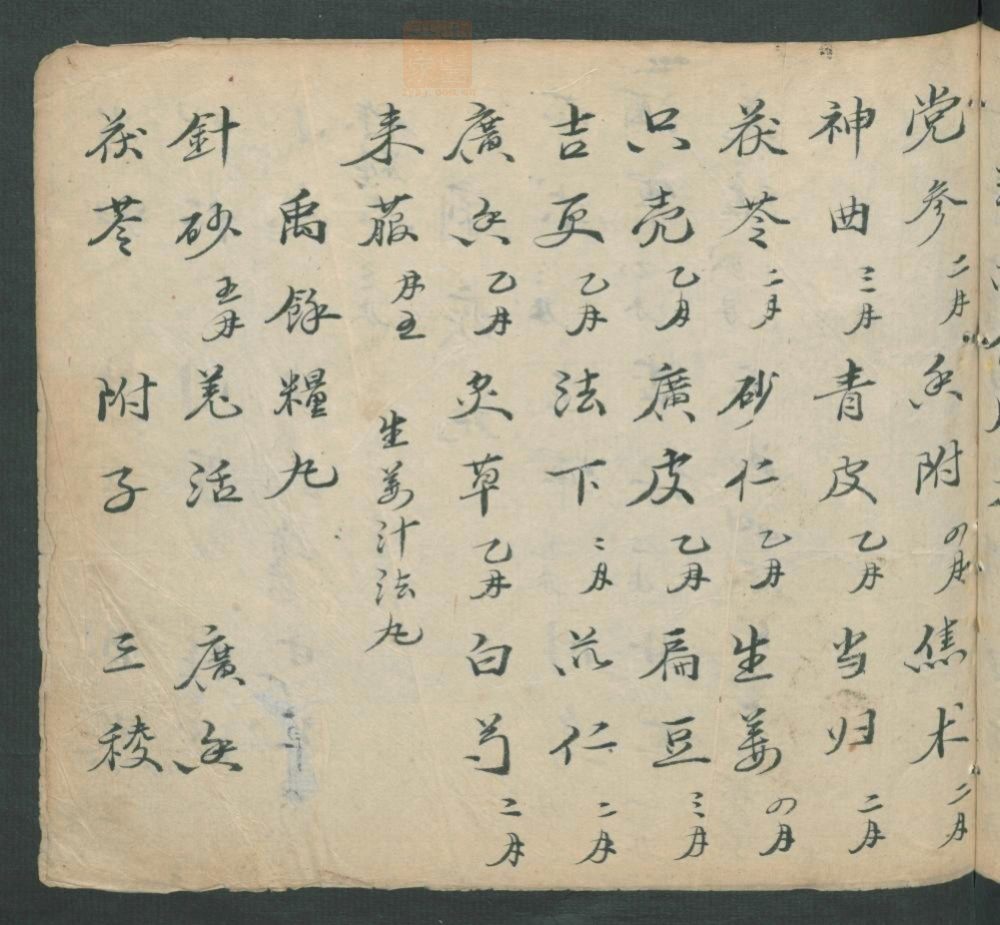 党参二月 香附の月 焦术二月
神曲三月 青皮乙月 当归二月
茯苓二月 砂仁乙月 生姜の月
只壳乙月 廣皮乙月 扁豆三月
吉更乙月 法下二月 苡仁二月
廣香乙月 炙草乙月 白芍二月
来菔月五 生姜汁法丸
禹餘糧丸
針砂五月 羌活 廣香
茯苓 附子 三稜